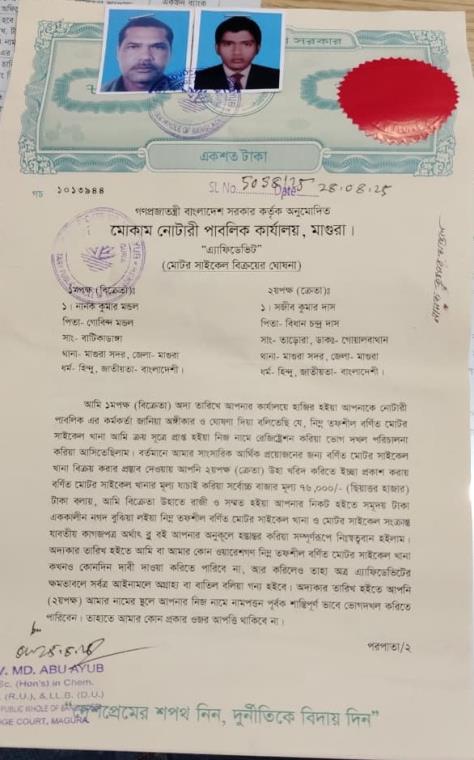 সরকার
একশত টাকা
গচ ১০১৩৯৪৪
SL No. 5058/25 Date 28.08.25
গণপ্রজাতন্ত্রী বাংলাদেশ সরকার কর্তৃক অনুমোদিত
মোকাম নোটারী পাবলিক কার্যালয়, মাগুরা।
"এ্যাফিডেভিট"
(মোটর সাইকেল বিক্রয়ের ঘোষনা)
১মপক্ষ (বিক্রেতা)ঃ
১। নানক কুমার মন্ডল
পিতা- গোবিন্দ মন্ডল
সাং- বাটিকাডাঙ্গা
থানা- মাগুরা সদর, জেলা- মাগুরা
ধর্ম- হিন্দু, জাতীয়তা- বাংলাদেশী।
২য়পক্ষ (ক্রেতা)ঃ
১। সজীব কুমার দাস
পিতা- বিধান চন্দ্র দাস
সাং- তাড়োরা, ডাকঃ- গোয়ালবাথান
থানা- মাগুরা সদর, জেলা- মাগুরা
ধর্ম- হিন্দু, জাতীয়তা- বাংলাদেশী।
আমি ১মপক্ষ (বিক্রেতা) অদ্য তারিখে আপনার কার্যালয়ে হাজির হইয়া আপনাকে নোটারী
পাবলিক এর কর্মকর্তা জানিয়া অঙ্গীকার ও ঘোষণা দিয়া বলিতেছি যে, নিম্ন তফশীল বর্ণিত মোটর
সাইকেল খানা আমি ক্রয় সূত্রে প্রাপ্ত হইয়া নিজ নামে রেজিষ্ট্রেশন করিয়া ভোগ দখল পরিচালনা
করিয়া আসিতেছিলাম। বর্তমানে আমার সাংসারিক আর্থিক প্রয়োজনের জন্য বর্ণিত মোটর সাইকেল
খানা বিক্রয় করার প্রস্তাব দেওয়ায় আপনি ২য়পক্ষ (ক্রেতা) উহা খরিদ করিতে ইচ্ছা প্রকাশ করায়
বর্ণিত মোটর সাইকেল খানার মূল্য যাচাই করিয়া সর্বোচ্চ বাজার মূল্য ৭৬,০০০/- (ছিয়াত্তর হাজার)
টাকা বলায়, আমি বিক্রেতা উহাতে রাজী ও সম্মত হইয়া আপনার নিকট হইতে সমুদয় টাকা
এককালীন নগদ বুঝিয়া লইয়া নিম্ন তফশীল বর্ণিত মোটর সাইকেল খানা ও মোটর সাইকেল সংক্রান্ত
যাবতীয় কাগজপত্র অর্থাৎ ব্লু বই আপনার অনুকূলে হস্তান্তর করিয়া সম্পূর্ণরূপে নিঃস্বত্ববান হইলাম।
অদ্যকার তারিখ হইতে আমি বা আমার কোন ওয়ারেশগন নিম্ন তফশীল বর্ণিত মোটর সাইকেল খানা
কখনও কোনদিন দাবী দাওয়া করিতে পারিবে না, আর করিলেও তাহা অত্র এ্যাফিডেভিটের
ক্ষমতাবলে সর্বত্র আইনামলে অগ্রাহ্য বা বাতিল বলিয়া গন্য হইবে। অদ্যকার তারিখ হইতে আপনি
(২য়পক্ষ) আমার নামের স্থলে আপনার নিজ নামে নামপত্তন পূর্বক শান্তিপূর্ণ ভাবে ভোগদখল করিতে
পারিবেন। তাহাতে আমার কোন প্রকার ওজর আপত্তি থাকিবে না।
পরপাতা/২
V. MD. ABU AYUB
Sc. (Hon's) in Chem.
(R.U.), & LL.B. (D.U.)
PUBLIC WHOLE OF
GE COURT, MAGURA
"দেশপ্রেমের শপথ নিন, দুর্নীতিকে বিদায় দিন"